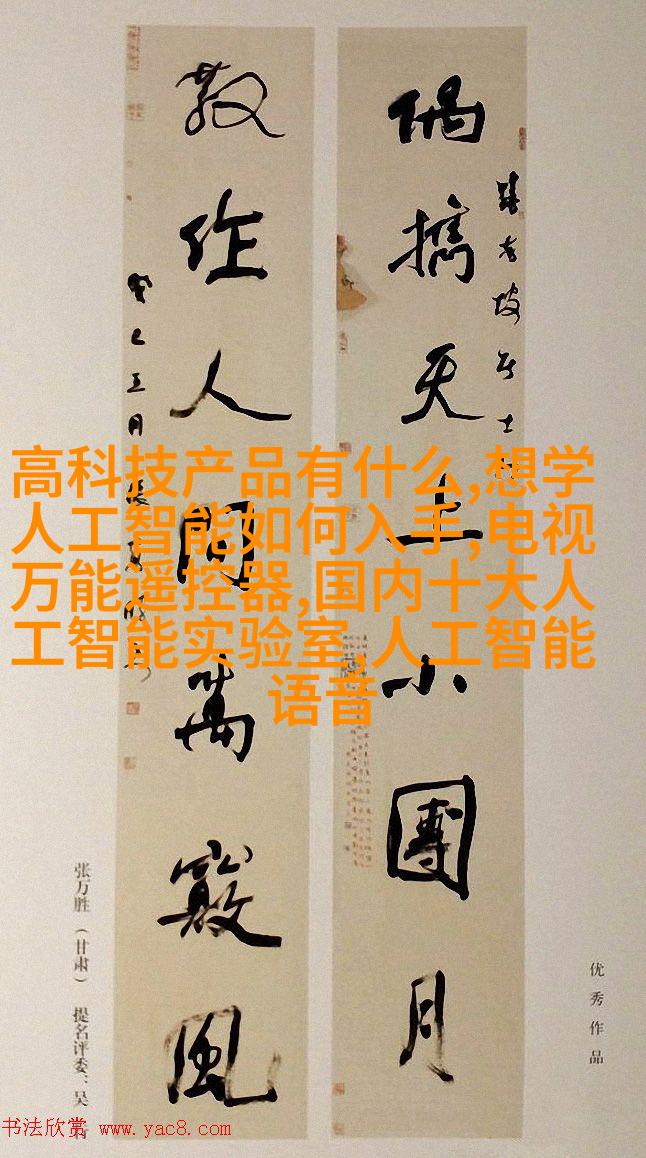 偶攜天上小團月
散作人間萬竅風
癸巳五月張萬勝
高科技产品有什么,想学
人工智能如何入手,电视
万能遥控器,国内十大人
工智能实验室,人工智能
语音
张万胜（甘肃） 提名评委：吴
优秀作品
书法欣赏 www.yac8.com